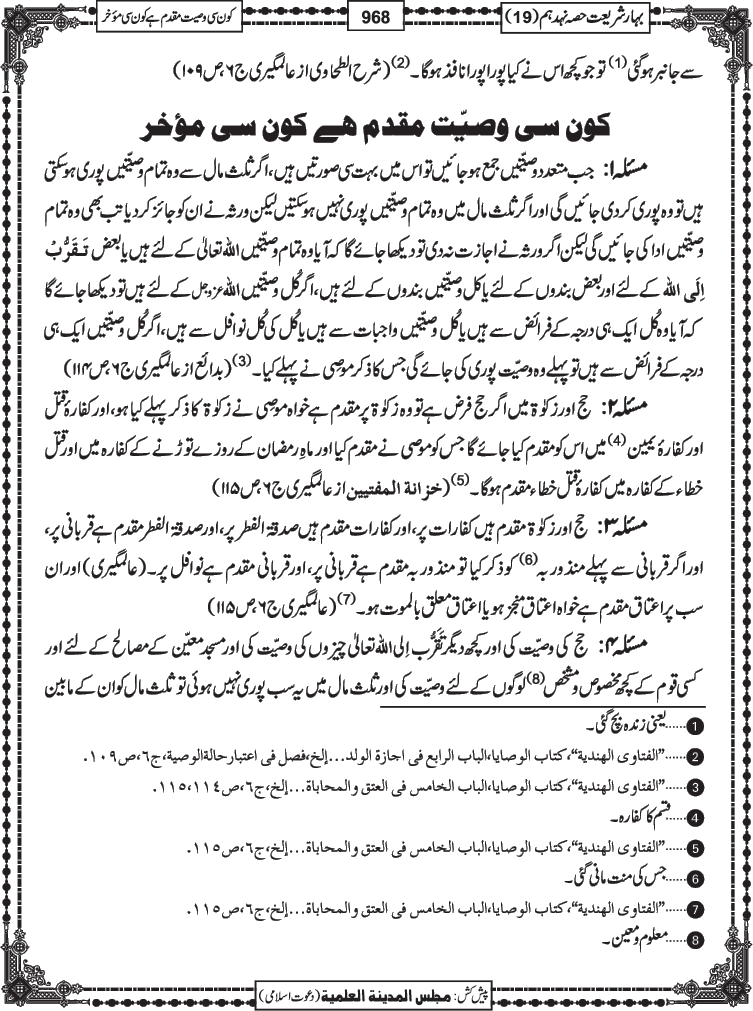 بہار شریعت حصہ نہدہم (19)
968
کون سی وصیت مقدم ہے کون سی مؤخر
سے جانبر ہوگئی (1) تو جو کچھ اس نے کیا پورا پورا نافذ ہوگا۔ (2) (شرح الطحاوی از عالمگیری ج۶، ص۱۰۹)
کون سی وصیّت مقدم ھے کون سی مؤخر
مسئلہ۱: جب متعدد وصیّتیں جمع ہوجائیں تو اس میں بہت سی صورتیں ہیں، اگر ثلث مال سے وہ تمام وصیّتیں پوری ہوسکتی
ہیں تو وہ پوری کردی جائیں گی اور اگر ثلث مال میں وہ تمام وصیّتیں پوری نہیں ہوسکتیں لیکن ورثہ نے ان کو جائز کردیا تب بھی وہ تمام
وصیّتیں ادا کی جائیں گی لیکن اگر ورثہ نے اجازت نہ دی تو دیکھا جائے گا کہ آیا وہ تمام وصیّتیں اللہ تعالیٰ کے لئے ہیں یا بعض تَقَرُّبْ
اِلَی اللہ کے لئے اور بعض بندوں کے لئے یا کل وصیّتیں بندوں کے لئے ہیں، اگر کُل وصیّتیں اللہ عزوجل کے لئے ہیں تو دیکھا جائے گا
کہ آیا وہ کُل ایک ہی درجہ کے فرائض سے ہیں یا کُل وصیّتیں واجبات سے ہیں یا کُل کی کُل نوافل سے ہیں، اگر کُل وصیّتیں ایک ہی
درجہ کے فرائض سے ہیں تو پہلے وہ وصیّت پوری کی جائے گی جس کا ذکر موصی نے پہلے کیا۔ (3) (بدائع از عالمگیری ج۶، ص۱۱۴)
مسئلہ۲: حج اور زکوٰۃ میں اگر حج فرض ہے تو وہ زکوٰۃ پر مقدم ہے خواہ موصی نے زکوٰۃ کا ذکر پہلے کیا ہو، اور کفارۂ قتل
اور کفارۂ یمین (4) میں اس کو مقدم کیا جائے گا جس کو موصی نے مقدم کیا اور ماہِ رمضان کے روزے توڑنے کے کفارہ میں اور قتل
خطاء کے کفارہ میں کفارۂ قتل خطاء مقدم ہوگا۔ (5) (خزانة المفتیین از عالمگیری ج۶، ص۱۱۵)
مسئلہ۳: حج اور زکوٰۃ مقدم ہیں کفارات پر، اور کفارات مقدم ہیں صدقۃ الفطر پر، اور صدقۃ الفطر مقدم ہے قربانی پر،
اور اگر قربانی سے پہلے منذور بہ (6) کو ذکر کیا تو منذور بہ مقدم ہے قربانی پر، اور قربانی مقدم ہے نوافل پر۔ (عالمگیری) اور ان
سب پر اعتاق مقدم ہے خواہ اعتاق منجز ہو یا اعتاق معلق بالموت ہو۔ (7) (عالمگیری ج۶، ص۱۱۵)
مسئلہ۴: حج کی وصیّت کی اور کچھ دیگر تَقَرُّب اِلی اللہ تعالیٰ چیزوں کی وصیّت کی اور مسجد معیّن کے مصالح کے لئے اور
کسی قوم کے کچھ مخصوص و مشخص (8) لوگوں کے لئے وصیّت کی اور ثلث مال میں یہ سب پوری نہیں ہوئی تو ثلث مال کو ان کے مابین
1 ......یعنی زندہ بچ گئی۔
2 ......"الفتاوی الهندية"، کتاب الوصایا، الباب الرابع فی اجازة الولد...إلخ، فصل فی اعتبار حالة الوصية، ج٦، ص١٠٩.
3 ......"الفتاوی الهندية"، کتاب الوصایا، الباب الخامس فی العتق والمحاباة...إلخ، ج٦، ص١١٤، ١١٥.
4 ......قسم کا کفارہ۔
5 ......"الفتاوی الهندية"، کتاب الوصایا، الباب الخامس فی العتق والمحاباة...إلخ، ج٦، ص١١٥.
6 ......جس کی منت مانی گئی۔
7 ......"الفتاوی الهندية"، کتاب الوصایا، الباب الخامس فی العتق والمحاباة...إلخ، ج٦، ص١١٥.
8 ......معلوم و معین۔
پیش کش: مجلس المدینة العلمیة (دعوت اسلامی)